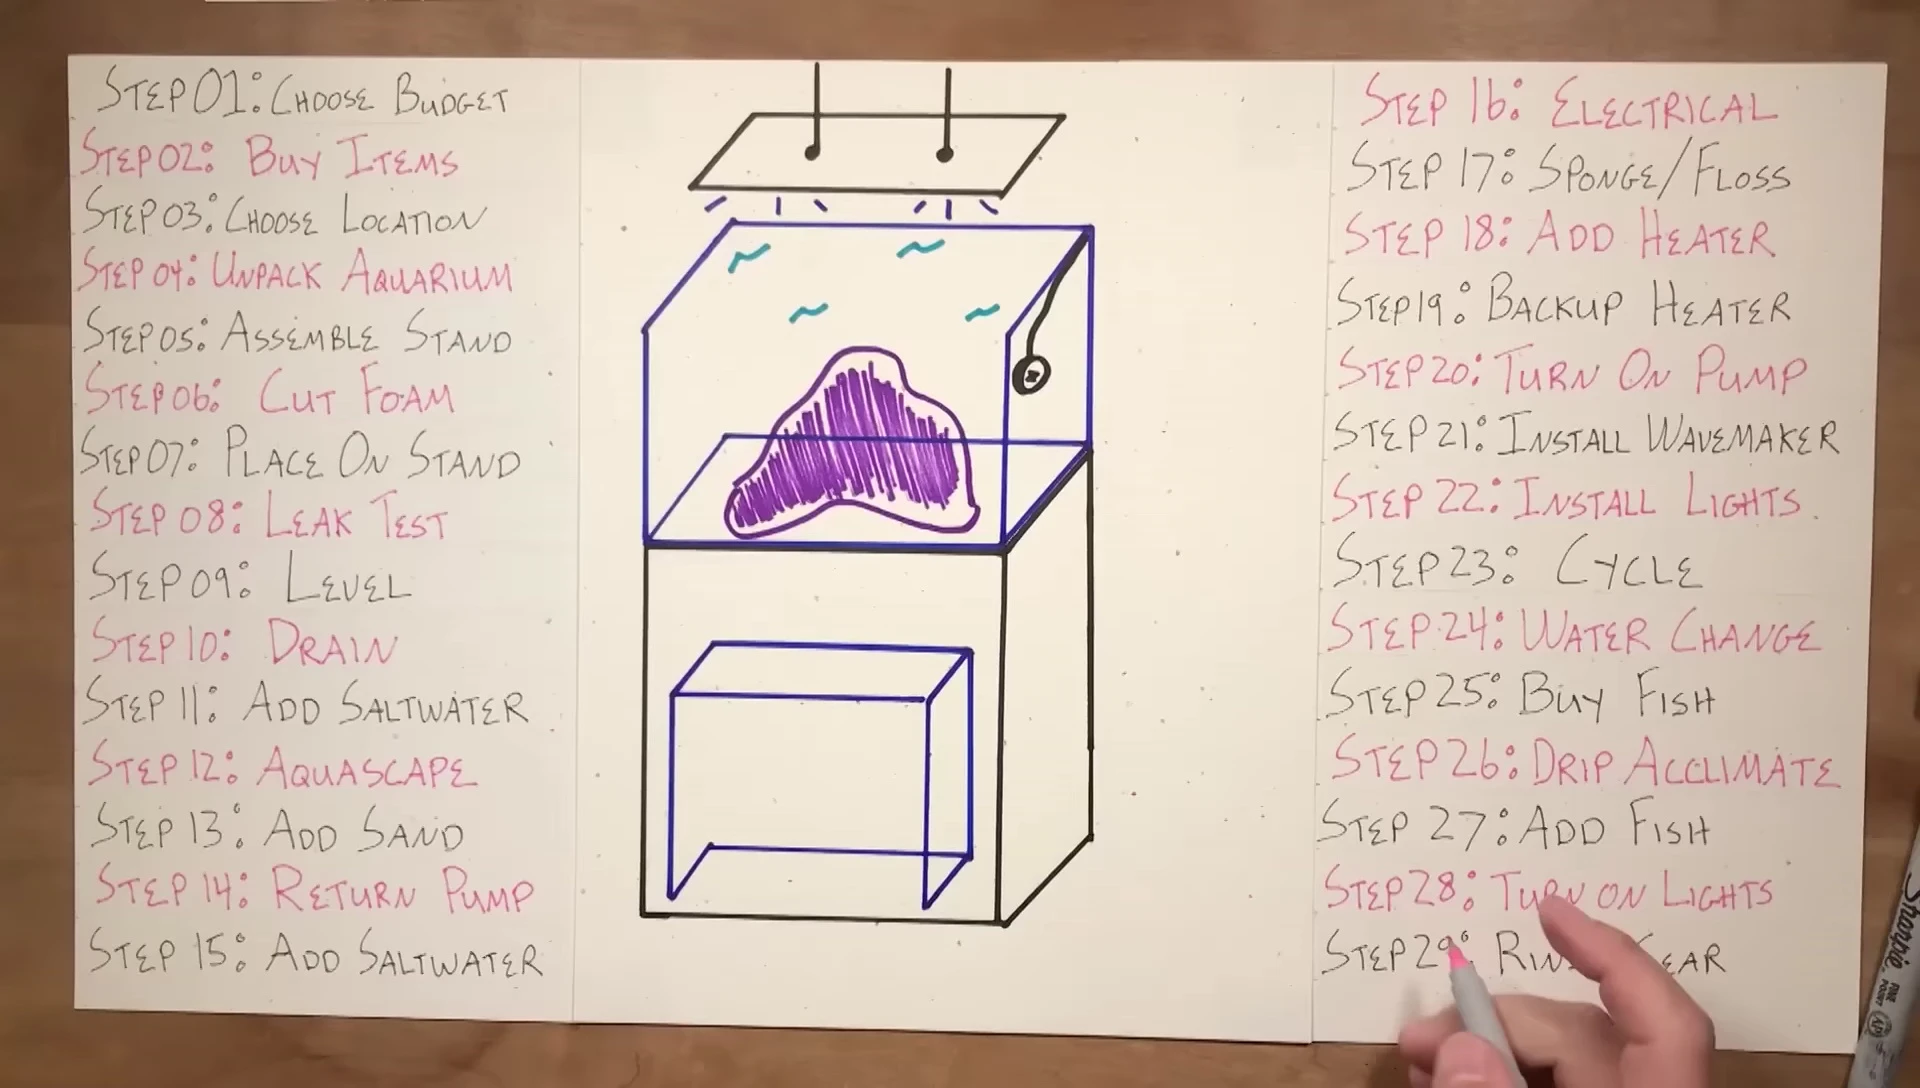 STEP 01: CHOOSE BUDGET
STEP 02: BUY ITEMS
STEP 03: CHOOSE LOCATION
STEP 04: UNPACK AQUARIUM
STEP 05: ASSEMBLE STAND
STEP 06: CUT FOAM
STEP 07: PLACE ON STAND
STEP 08: LEAK TEST
STEP 09: LEVEL
STEP 10: DRAIN
STEP 11: ADD SALTWATER
STEP 12: AQUASCAPE
STEP 13: ADD SAND
STEP 14: RETURN PUMP
STEP 15: ADD SALTWATER
STEP 16: ELECTRICAL
STEP 17: SPONGE/FLOSS
STEP 18: ADD HEATER
STEP 19: BACKUP HEATER
STEP 20: TURN ON PUMP
STEP 21: INSTALL WAVEMAKER
STEP 22: INSTALL LIGHTS
STEP 23: CYCLE
STEP 24: WATER CHANGE
STEP 25: BUY FISH
STEP 26: DRIP ACCLIMATE
STEP 27: ADD FISH
STEP 28: TURN ON LIGHTS
STEP 29:
Sharpie
FINE POINT
AP